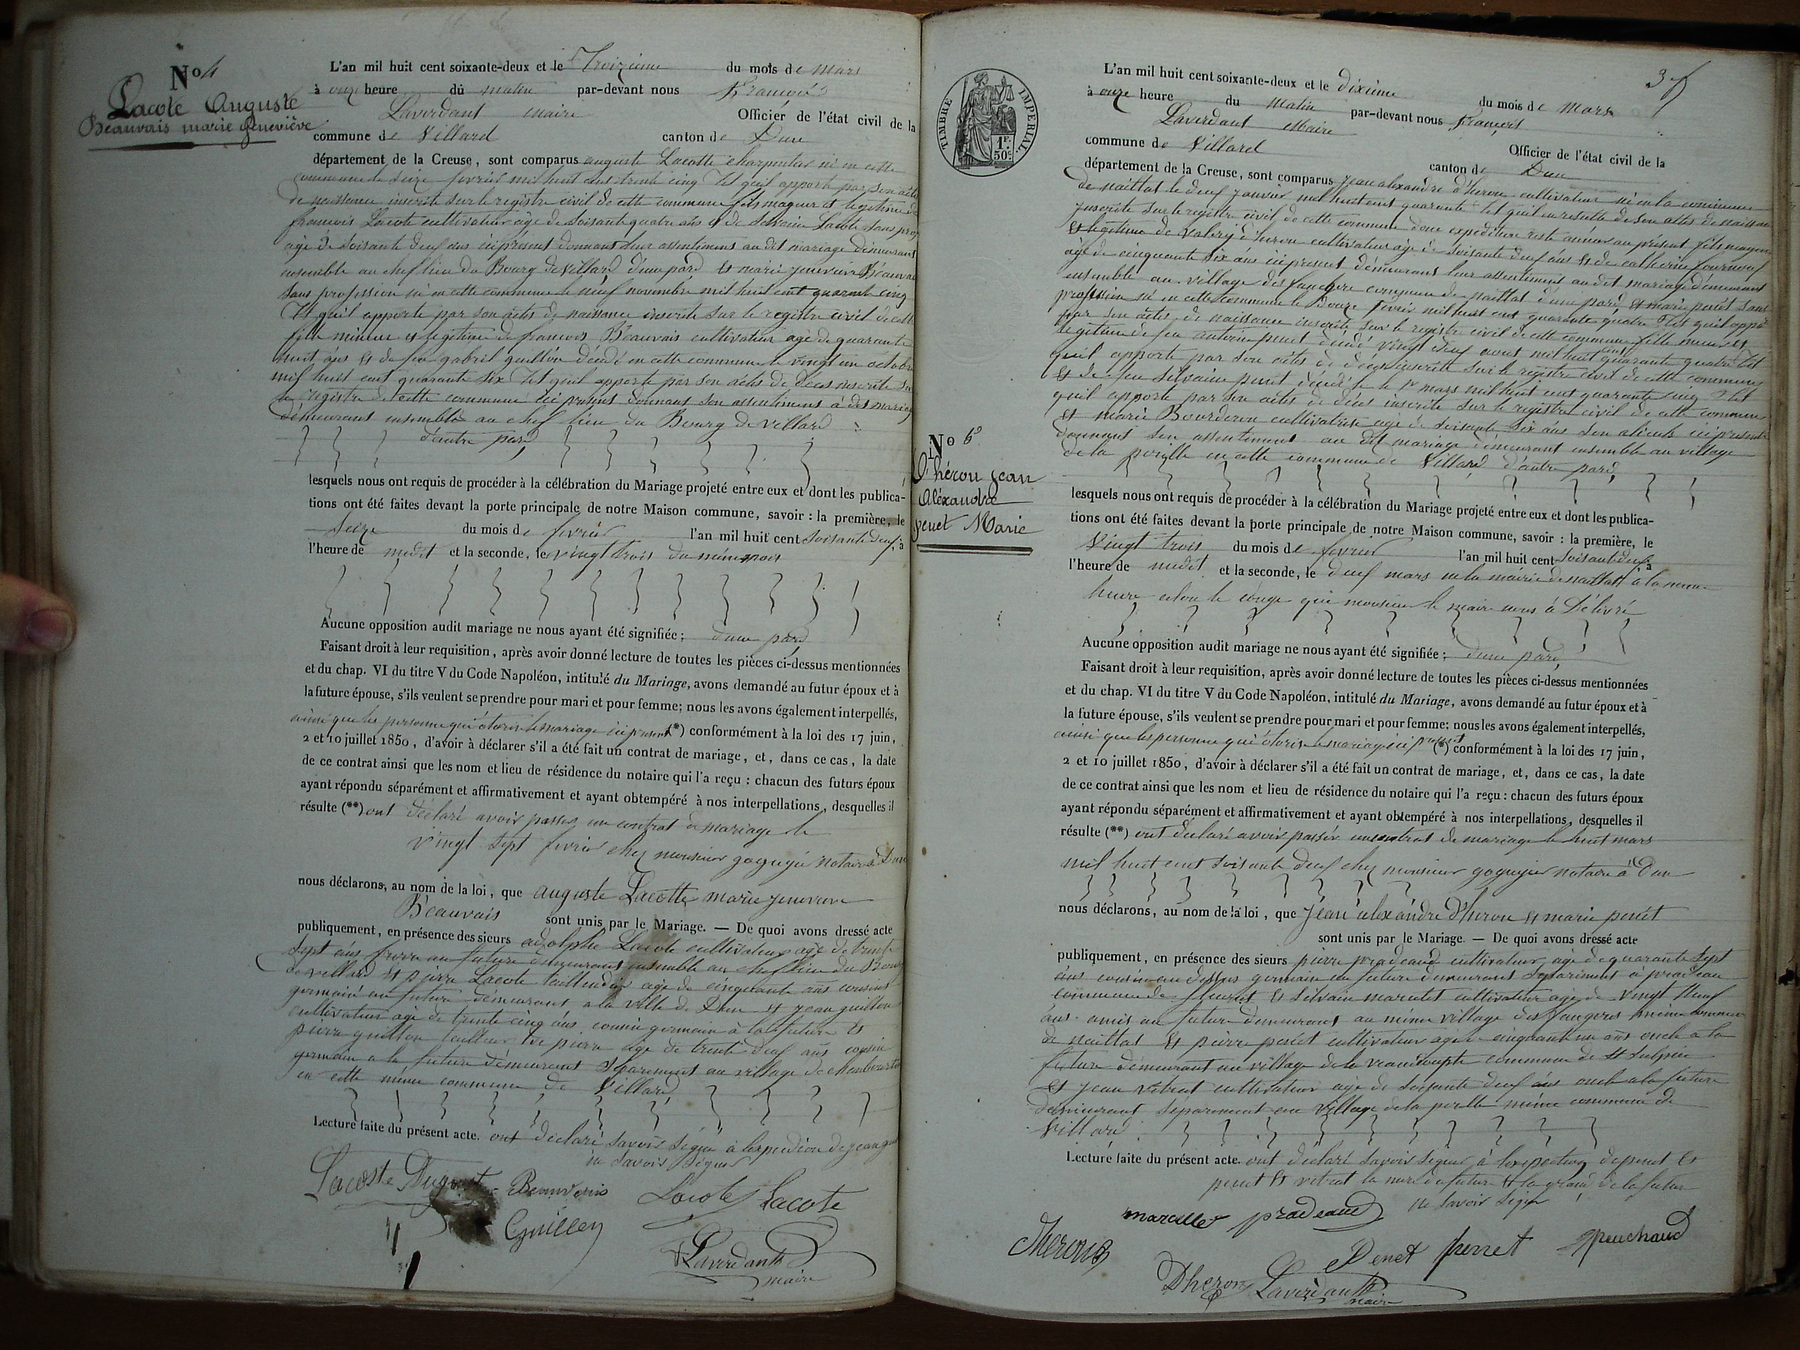 N° 4
Lacote Auguste
Beauvais marie geneviève
L'an mil huit cent soixante-deux et le Troizième du mois de mars
à onze heure du matin par-devant nous François
Laverdant maire Officier de l'état civil de la
commune de Villard canton de Dun
département de la Creuse, sont comparus auguste Lacotte charpentier né en cette
commune le seize fevrier mil huit cent trente cinq Tel quil apport par son acte
de naissance inscrite sur le registre civil de cette commune fils majeur et legitime de
francois Lacote cultivateur age de soisante quatre ans et de Lacote sans
agé de soisante deuf ans ici présent donnant leur assentiment au dit mariage demeurant
ensemble au chef lieu du Bourg de Villard d'une pard et marie jenevieve Beauvais
sans profession né en cette commune le neuf novembre mil huit cent quarante cinq
Tel quil apporte par son acte de naissance inscrite sur le registre civil de cette
fille mineur et legitime de francois Beauvais cultivateur agé de quarante
huit ans et de feu gabriel guillon décédé en cette commune le vingt un octobre
mil huit cent quarante six Tel quil apporte par son acte de deces inscrite sur
le registre de cette commune ici présent donnant son assentiment à dit mariage
demeurant ensemble au chef lieu du Bourg de Villard
d'autre pard
lesquels nous ont requis de procéder à la célébration du Mariage projeté entre eux et dont les publica-
tions ont été faites devant la porte principale de notre Maison commune, savoir : la première, le
seize du mois de fevrier l'an mil huit cent soisante deuf, à
l'heure de midit et la seconde, le vingt trois du même mois
Aucune opposition audit mariage ne nous ayant été signifiée ; d'une pard
Faisant droit à leur requisition, après avoir donné lecture de toutes les pièces ci-dessus mentionnées
et du chap. VI du titre V du Code Napoléon, intitulé du Mariage, avons demandé au futur époux et à
la future épouse, s'ils veulent se prendre pour mari et pour femme; nous les avons également interpellés,
ainsi que les personne qui otorise le mariage ici present (*) conformément à la loi des 17 juin,
2 et 10 juillet 1850, d'avoir à déclarer s'il a été fait un contrat de mariage, et, dans ce cas, la date
de ce contrat ainsi que les nom et lieu de résidence du notaire qui l'a reçu : chacun des futurs époux
ayant répondu séparément et affirmativement et ayant obtempéré à nos interpellations, desquelles il
résulte (**) ont déclaré avoir passer un contrat de mariage le
vingt sept fevrier chez monsieur notaire à Dun
nous déclarons, au nom de la loi, que auguste Lacotte marie jenevieve
Beauvais sont unis par le Mariage. — De quoi avons dressé acte
publiquement, en présence des sieurs adolphe Lacote cultivateur age de trente
sept ans frere au future demeurant ensemble au chef lieu du Bourg
de Villard et pierre Lacote age de cinquante ans cousin
germain au future demeurant a la ville de Dun et jean guillon
cultivateur age de trente cinq ans cousin germain a la future et
pierre guillon tailleur de pierre age de trente deuf ans cousin
germain a la future demeurant separement au village de
en cette même commune de Villard
Lecture faite du présent acte. ont déclaré savoir signer à
ne savoir signer
Lacoste August Beauvais Lacote Lacote
Guillon
Laverdant
maire
TIMBRE IMPERIAL
1F.
50c.
37
L'an mil huit cent soixante-deux et le dixième du mois de mars
à onze heure du matin par-devant nous François
Laverdant Maire Officier de l'état civil de la
commune de Villard canton de Dun
département de la Creuse, sont comparus jean alexandre d'heron cultivateur né en la commune
de naillat le deuf janvier mil huit cent quarante Tel quil en resulte de son actes de naissance
inscrite sur le registre civil de cette commune dont expedition reste annexé au présent fils majeur
et legitime de d'heron cultivateur agé de soisante deuf ans et de catherine
agé de cinquante six ans ici présent demeurant leur assentiment au dit mariage demeurant
ensemble au village des commune de naillat d'une pard et marie peret sans
profession né en cette commune le Douze fevrier mil huit cent quarante quatre Tel quil apporte
par son actes de naissance inscrite sur le registre civil de cette commune fille mineure et
legitime de feu antoine peret décédé vingt deuf mil huit cent quarante quatre Tel
quil apporte par son actes de décès inscrite sur le registre civil de cette commune
et de feu silvaine peret décédé le mars mil huit cent quarante cinq Tel
quil apporte par son actes de décès inscrite sur le registre civil de cette commune
et marie Bourderon cultivatrice age de soisante six ans son ici présent
donnant son assentiment au dit mariage demeurant ensemble au village
de la en cette commune de Villard d'autre pard
N° 6
D'héron jean
Aléxandre
peret Marie
lesquels nous ont requis de procéder à la célébration du Mariage projeté entre eux et dont les publica-
tions ont été faites devant la porte principale de notre Maison commune, savoir : la première, le
vingt trois du mois de fevrier l'an mil huit cent soisante deuf, à
l'heure de midit et la seconde, le deuf mars la mairie de naillat a la meme
heure selon le conge que monsieur le maire nous à délivré
Aucune opposition audit mariage ne nous ayant été signifiée ; d'une pard
Faisant droit à leur requisition, après avoir donné lecture de toutes les pièces ci-dessus mentionnées
et du chap. VI du titre V du Code Napoléon, intitulé du Mariage, avons demandé au futur époux et à
la future épouse, s'ils veulent se prendre pour mari et pour femme; nous les avons également interpellés,
ainsi que les personne qui otorise le mariage ici present (*) conformément à la loi des 17 juin,
2 et 10 juillet 1850, d'avoir à déclarer s'il a été fait un contrat de mariage, et, dans ce cas, la date
de ce contrat ainsi que les nom et lieu de résidence du notaire qui l'a reçu : chacun des futurs époux
ayant répondu séparément et affirmativement et ayant obtempéré à nos interpellations, desquelles il
résulte (**) ont déclaré avoir passér un contrat de mariage le huit mars
mil huit cent soisante deuf chez monsieur notaire à Dun
nous déclarons, au nom de la loi, que Jean alexandre D'heron et marie peret
sont unis par le Mariage. — De quoi avons dressé acte
publiquement, en présence des sieurs pierre pradeaud cultivateur age de quarante sept
ans cousin germain du future demeurant separement à pradeau
commune de fleurat et silvain cultivateur age de vingt neuf
ans amis au future demeurant au même village des même commune
de naillat et pierre peret cultivateur age cinquante un ans oncle a la
future demeurant au village de commune de St Sulpice
et jean vitrat cultivateur age de soisante deuf ans oncle a la future
demeurant separement au village de la même commune de
Villard
Lecture faite du présent acte. ont déclaré savoir signer à de peret et
peret et vitrat la mere du futur et la grand de la futur
ne savoir signer
pradeaud
Dheron Laverdant
maire